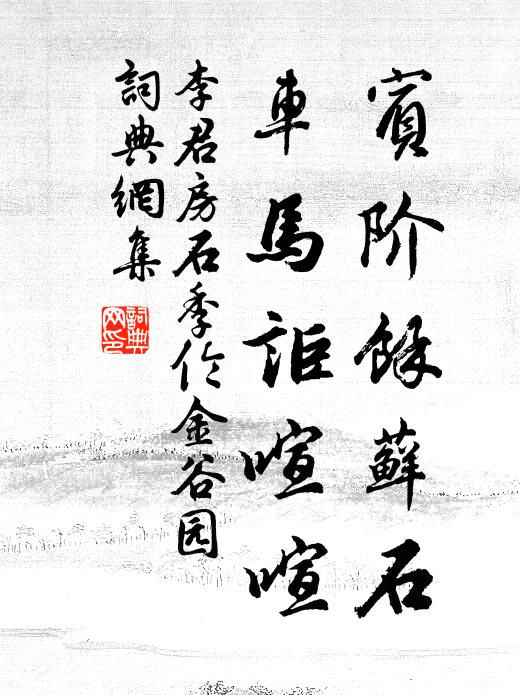 賓阶餘蘚石
車馬詎喧喧
李君房石季伦金谷园
詞典網集
詞典
网印